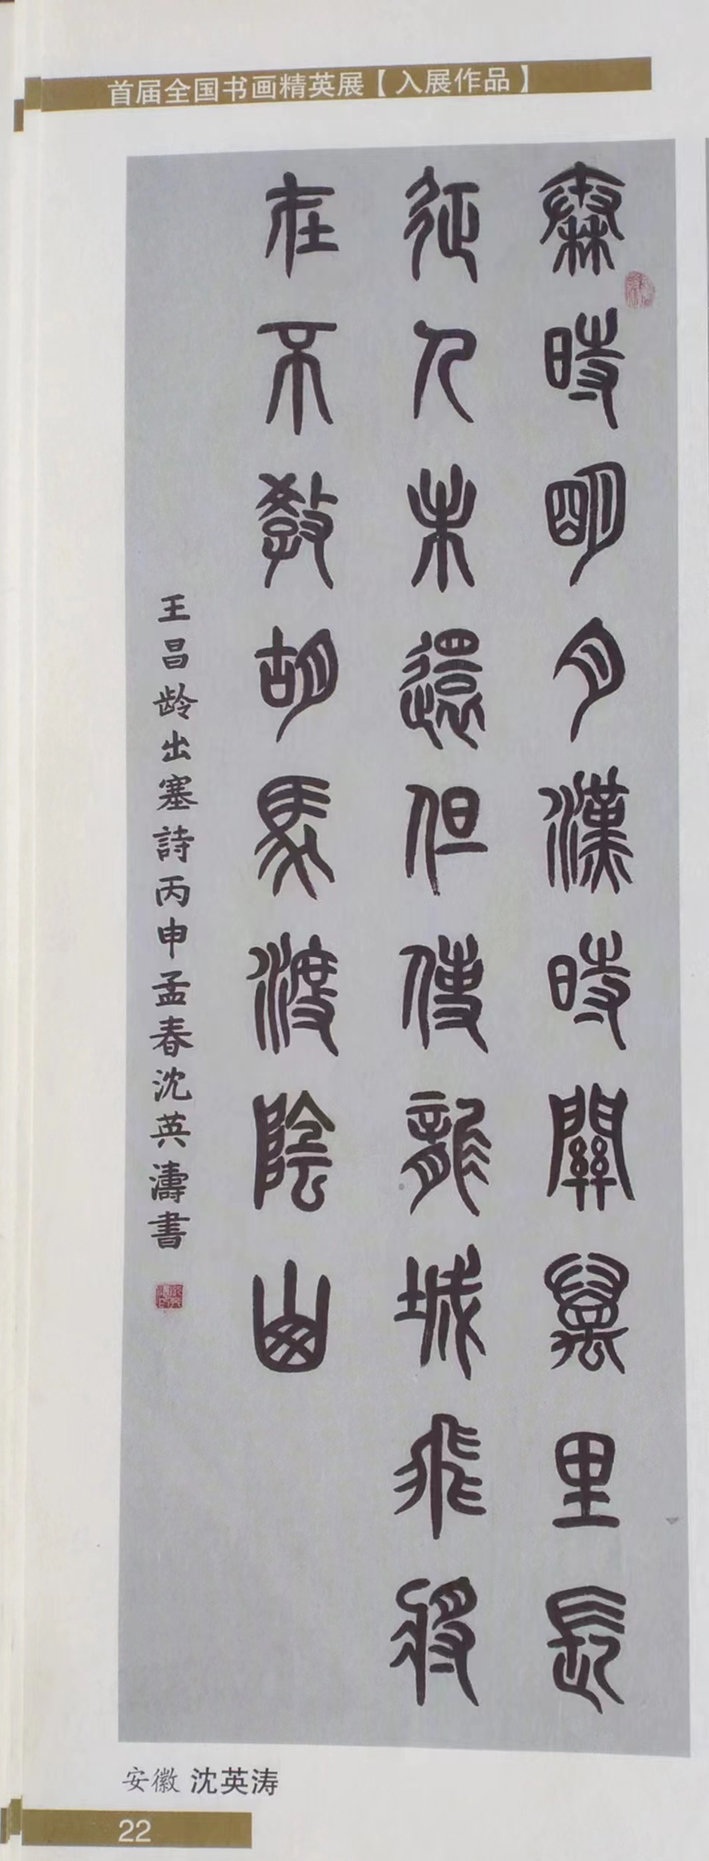 首届全国书画精英展【入展作品】
秦時明月漢時關萬里長
征人未還但使龍城飛将
在不教胡馬渡陰山
王昌龄出塞詩丙申孟春沈英濤書
安徽 沈英涛
22